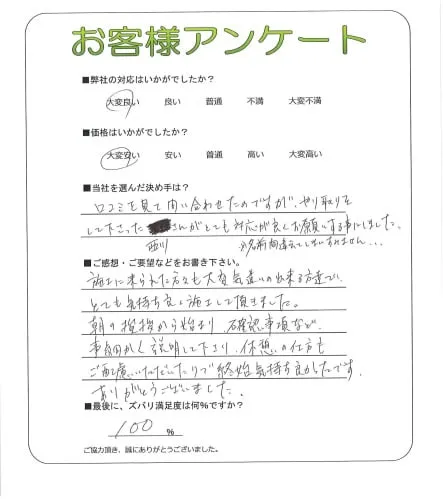 お客様アンケート
■弊社の対応はいかがでしたか?
大変良い 良い 普通 不満 大変不満
■価格はいかがでしたか?
大変安い 安い 普通 高い 大変高い
■当社を選んだ決め手は?
口コミを見て問い合わせたのですが、やり取りを
して下さった さんがとても対応が良くお願いする事にしました。
西川 お名前間違えてしまいすみません...
■ご感想・ご要望などをお書き下さい。
施工に来られた方々も大変気遣いの出来る方達で
とても気持ち良く施工して頂きました。
朝の挨拶から始まり、確認事項など、
事細かく説明して下さり、休憩の仕方も
ご配慮いただいたりで終始気持ち良かったです。
ありがとうございました。
■最後に、ズバリ満足度は何%ですか?
100 %
ご協力頂き、誠にありがとうございました。